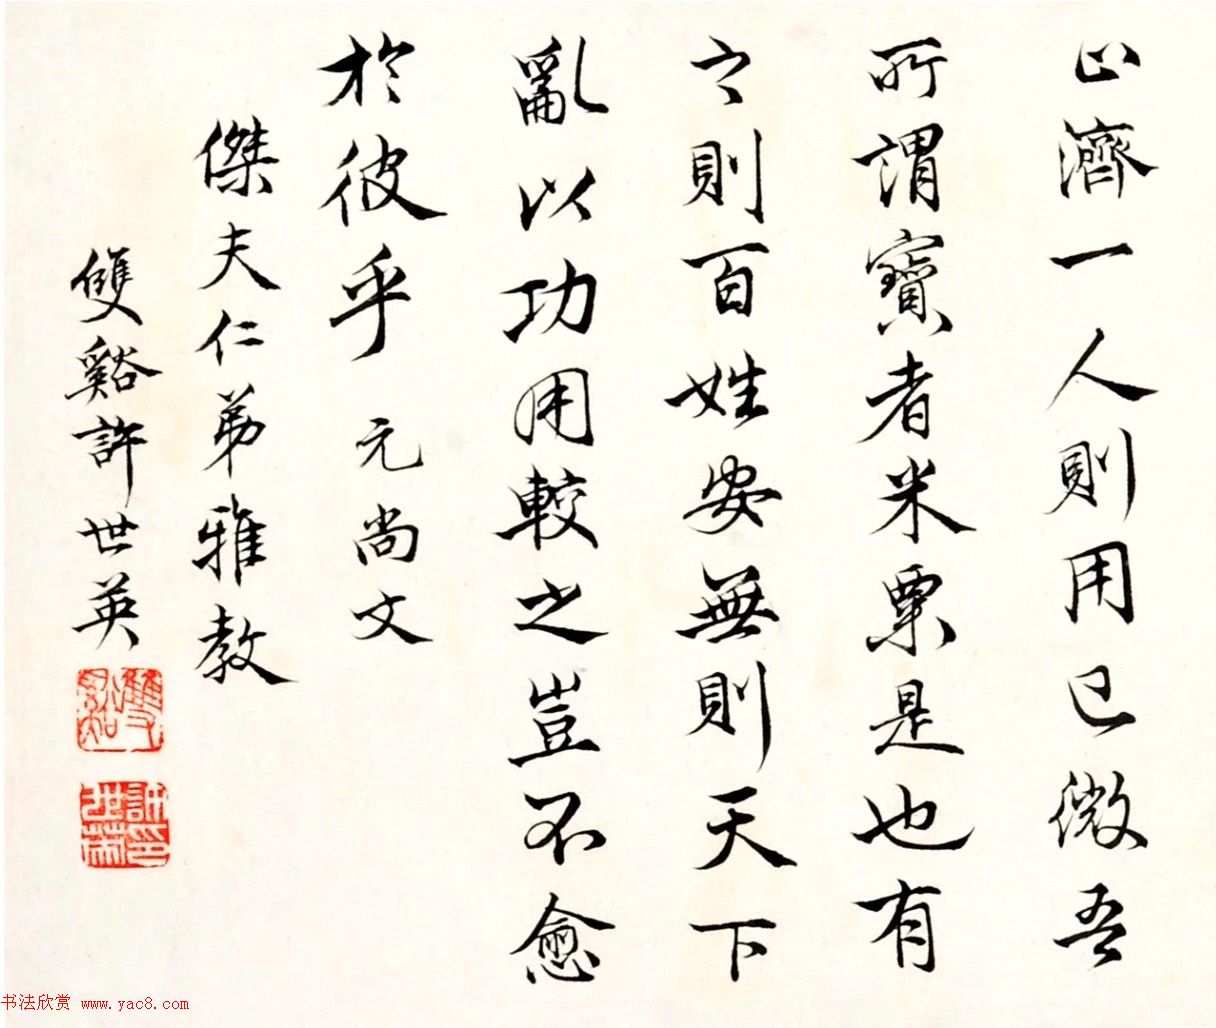 止濟一人則用已微吾
所謂寶者米粟是也有
之則百姓安無則天下
亂以功用較之豈不愈
於彼乎 元尚文
傑夫仁弟雅教
雙谿許世英
許世英印
书法欣赏 www.yac8.com